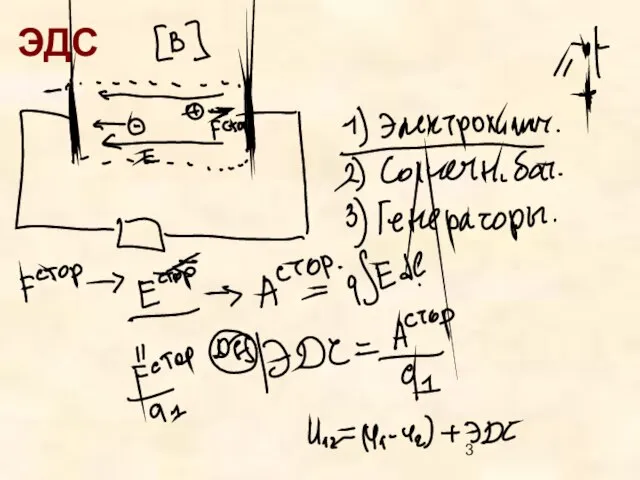 ЭДС
[В]
+
- Fстор
E
1) Электрохимич.
2) Солнечн. бат.
3) Генераторы.
Fстор → Eстор → Aстор. = q∫E dl
"
Fстор / q1
Def | ЭДС = Aстор / q1
U12 = (φ1 - φ2) + ЭДС
3